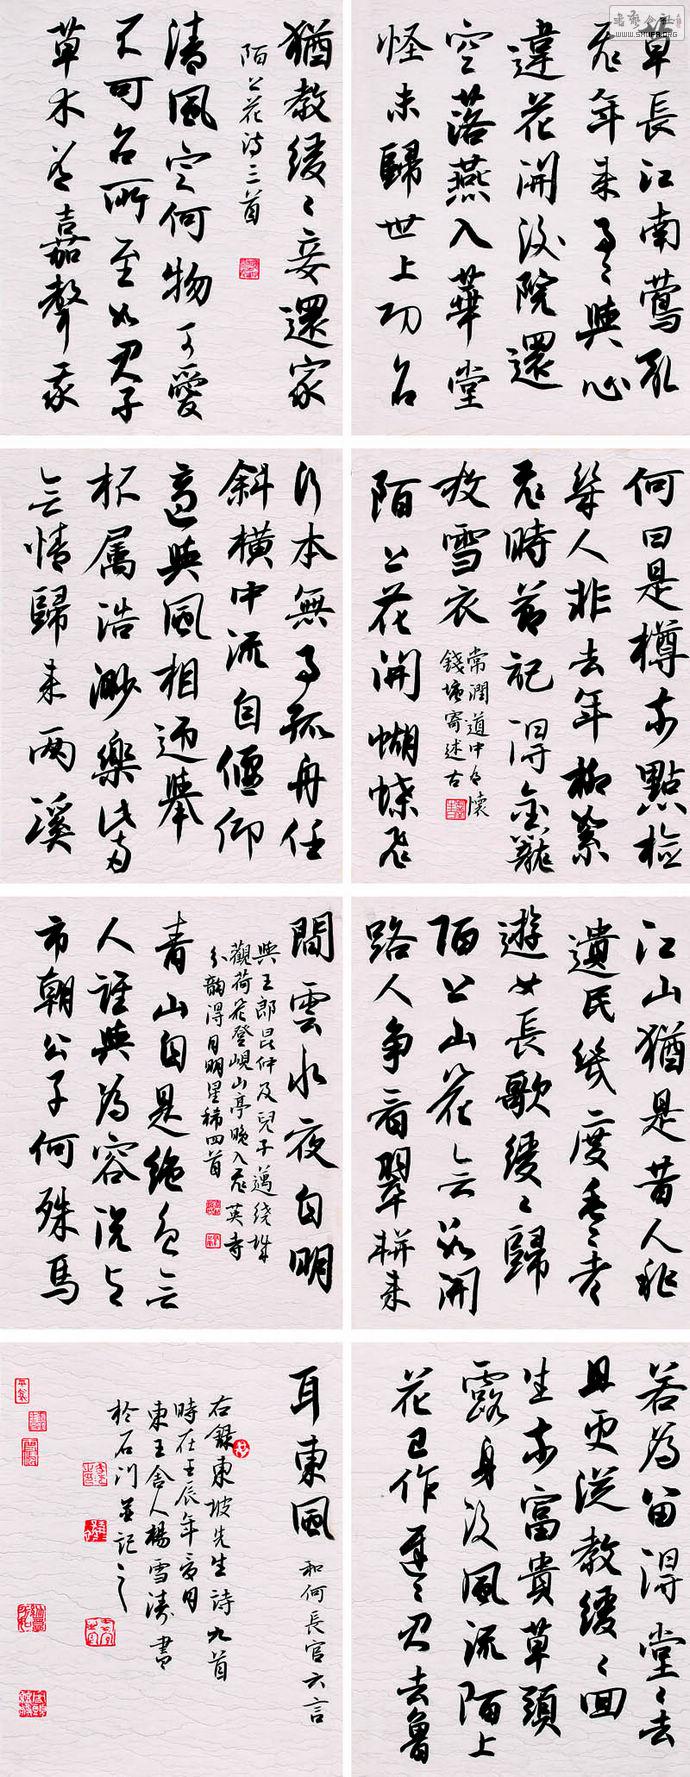 草長江南鶯亂
飛年來事事與心
違花開後院還
空落燕入華堂
怪未歸世上功名
何日是樽前點檢
幾人非去年柳絮
飛時節記得金籠
放雪衣
常潤道中有懷
錢塘寄述古
陌上花開蝴蝶飛
江山猶是昔人非
遺民幾度垂垂老
遊女長歌緩緩歸
陌上山花無數開
路人爭看翠軿來
若為留得堂堂去
且更從教緩緩回
生前富貴草頭
露身後風流陌上
花已作遲遲君去魯
猶教緩緩妾還家
陌上花詩三首
清風定何物可愛
不可名所至如君子
草木有嘉聲我
行本無事孤舟任
斜橫中流自偃仰
適與風相迎舉
杯屬浩渺樂此兩
無情歸來兩溪
間雲水夜自明
與王郎昆仲及兒子邁繞城
觀荷花登峴山亭晚入飛英寺
分韻得月明星稀四首
青山自是絕色無
人誰與為容說與
市朝公子何殊馬
耳東風
和何長官六言
右錄東坡先生詩九首
時在壬辰年月
東王舍人楊雪濤書
於石門並記之